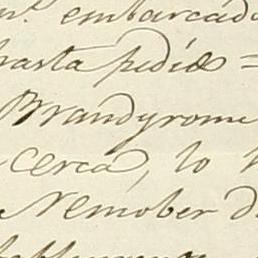 embarcado
hasta pedía =
Brandyrome
cerca, lo
Nemober d